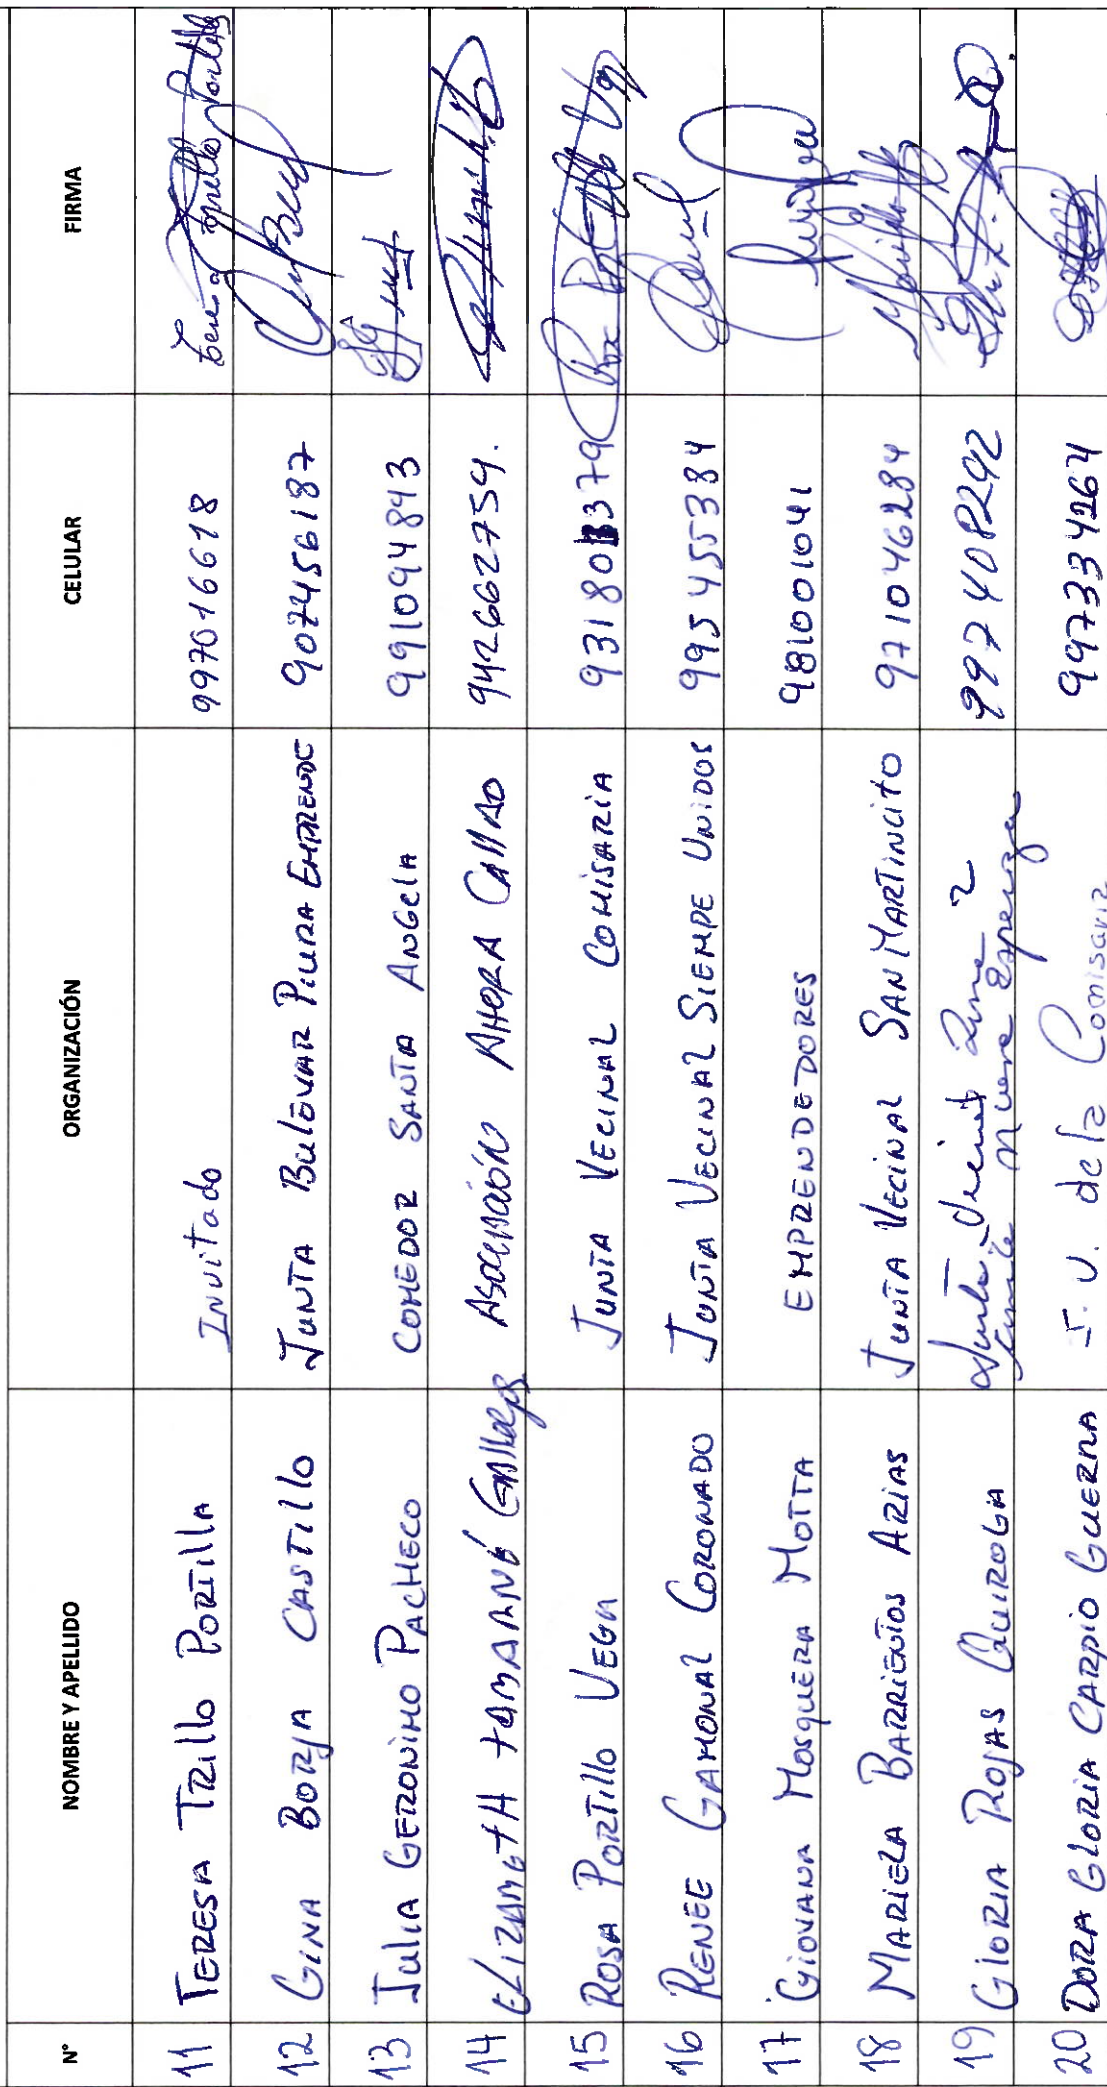 N° NOMBRE Y APELLIDO ORGANIZACIÓN CELULAR FIRMA
11 TERESA TRILLO PORTILLA Invitado 997016618
12 GINA BORJA CASTILLO JUNTA BULEVAR PIURA EMPRENDE 907456187
13 JULIA GERONIMO PACHECO COMEDOR SANTA ANGELA 991094843
14 ELIZABETH TAMARIZ Asociación AHORA CALLAO 942662759.
15 ROSA PORTILLO VEGA JUNTA VECINAL COMISARIA
16 RENEE GAMONAL CORONADO JUNTA VECINAL SIEMPE UNIDOS 995455384
17 GIOVANA MOSQUERA MOTTA EMPRENDEDORES 981001041
18 MARIELA BARRIENTOS ARIAS JUNTA VECINAL SAN MARTINCITO 971046284
19 GLORIA ROJAS QUIROGA Nueva Esperanza
20 DORA GLORIA CARPIO GUERRA J. V. de la Comisaria 997334264